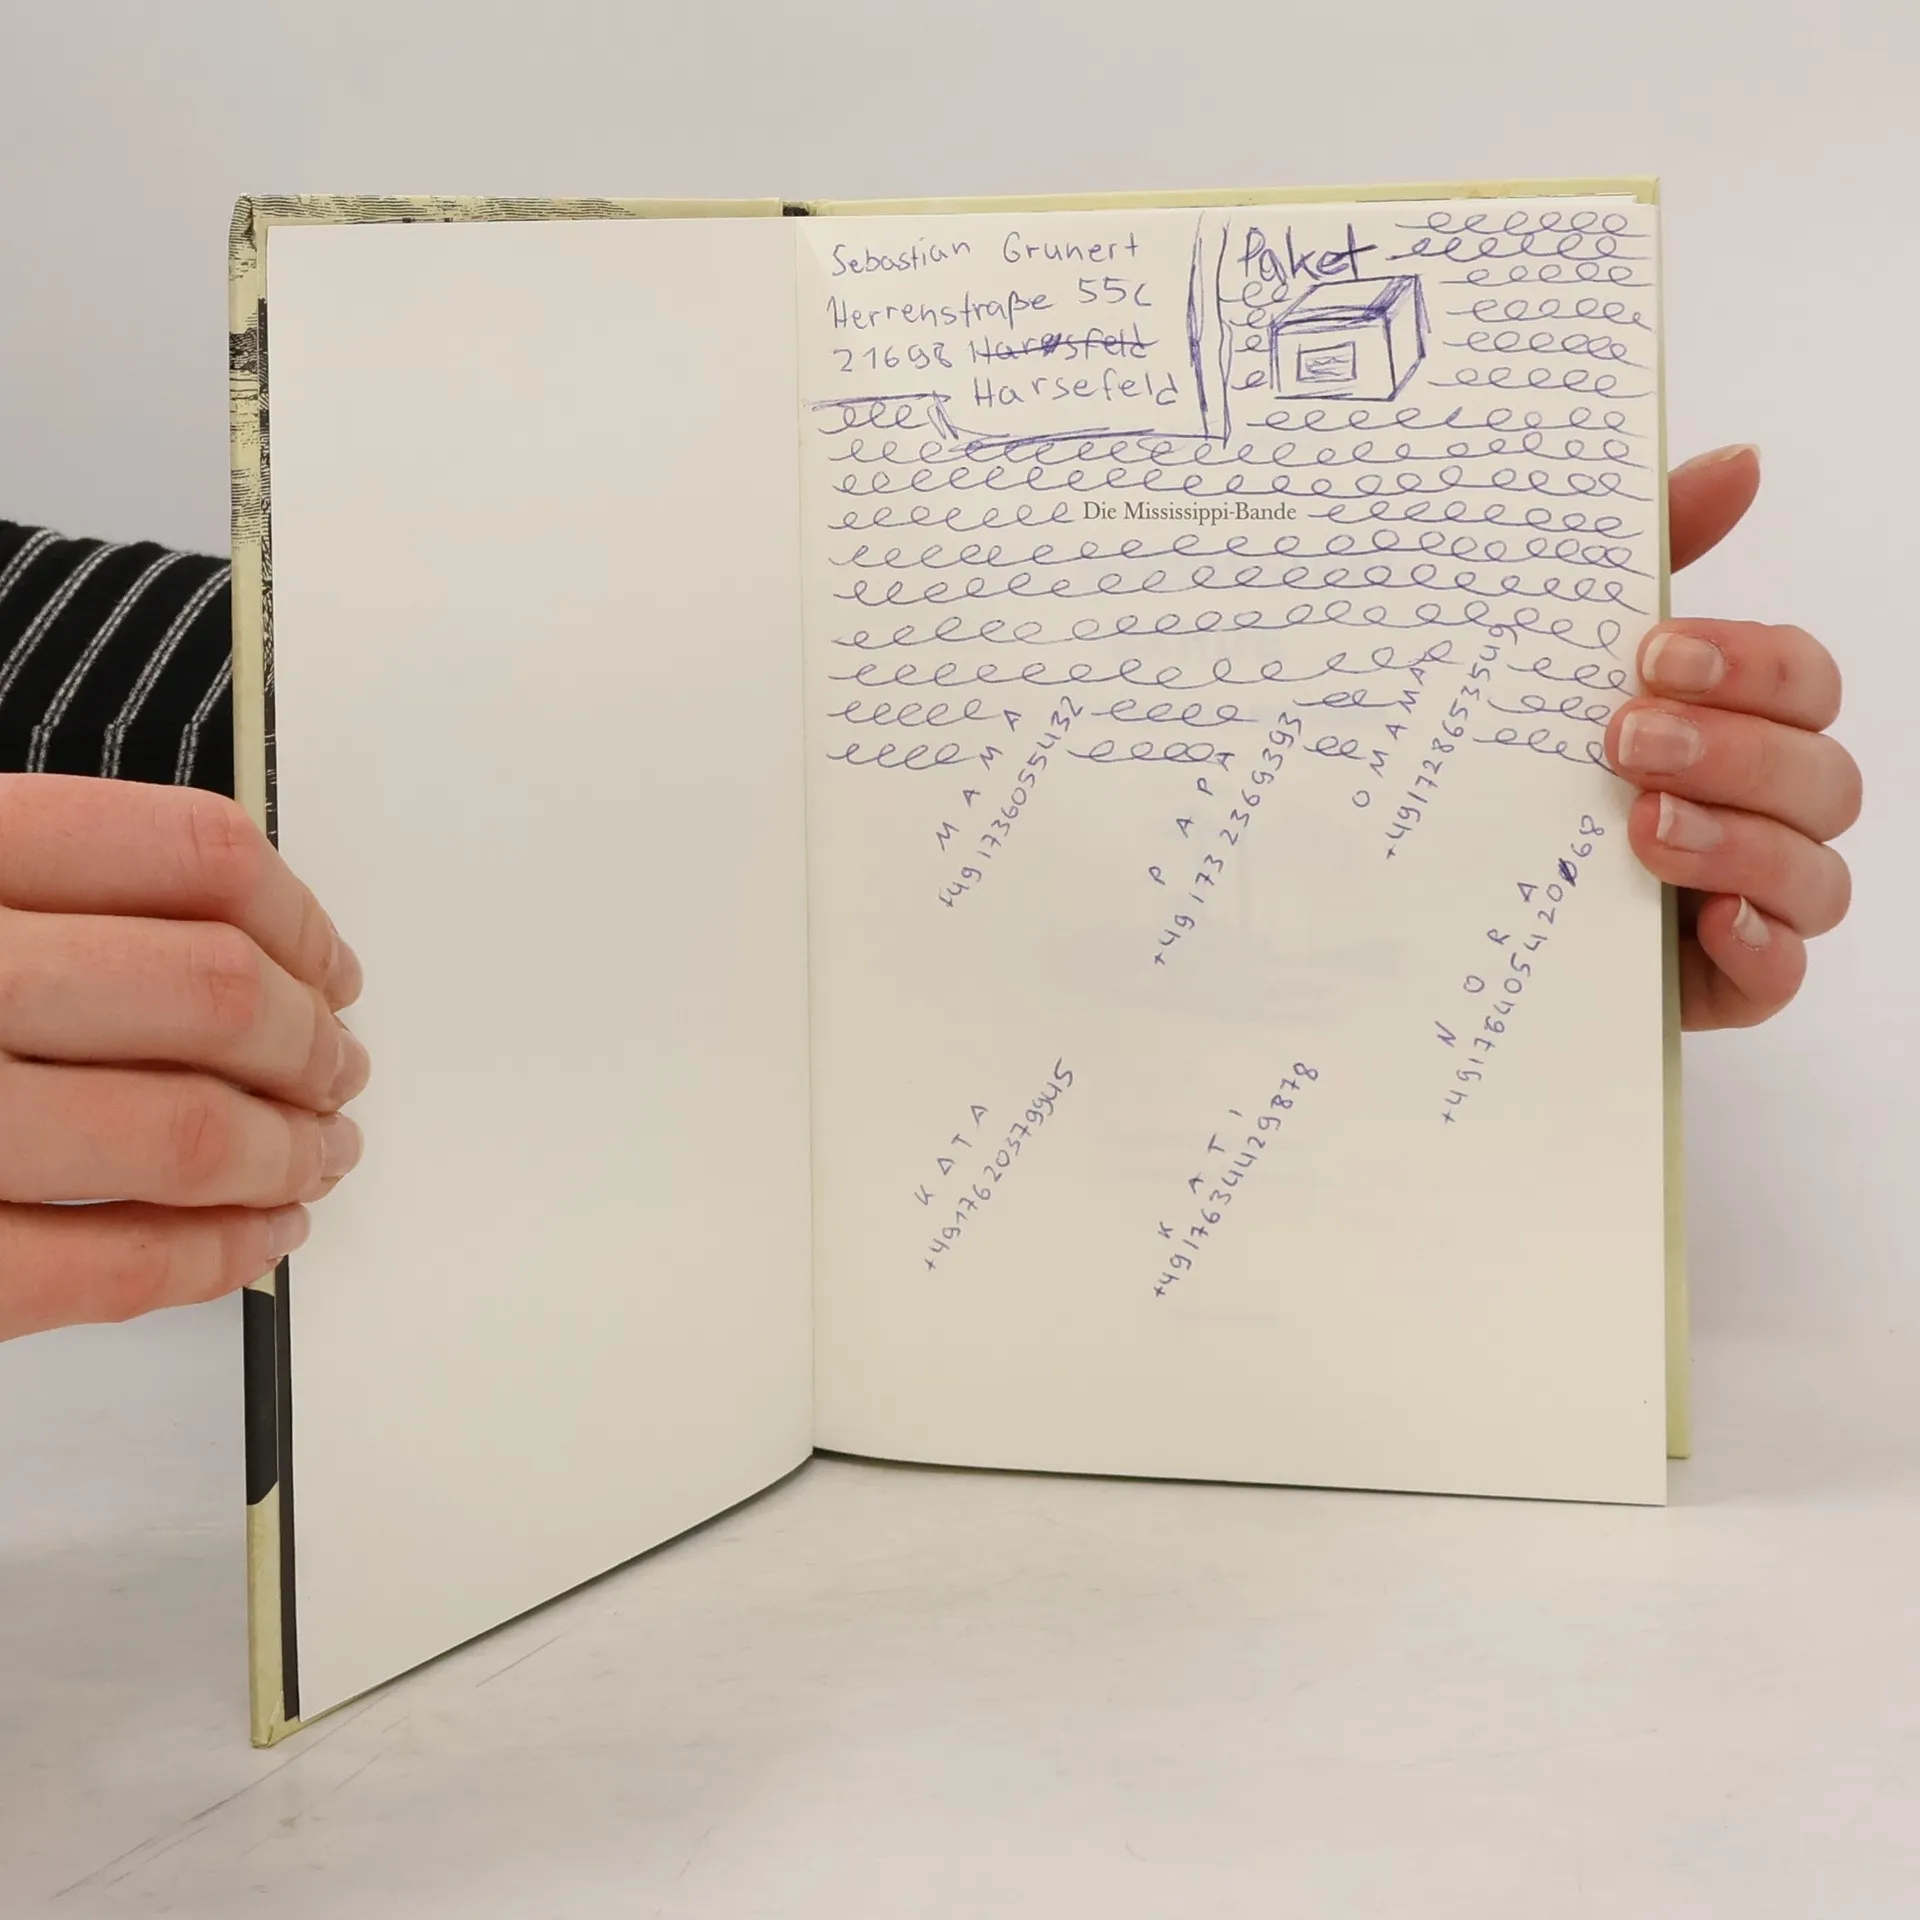 Sebastian Grunert
Herrenstraße 55c
21698 Harsfeld
Harsefeld
Paket
Die Mississippi-Bande
MAMA
+491736055432
PAPA
+49 173 2369393
OMAMA
+491728653549
NORA
+4917640542068
KATA
+4917620379945
KATI
+4917634429878